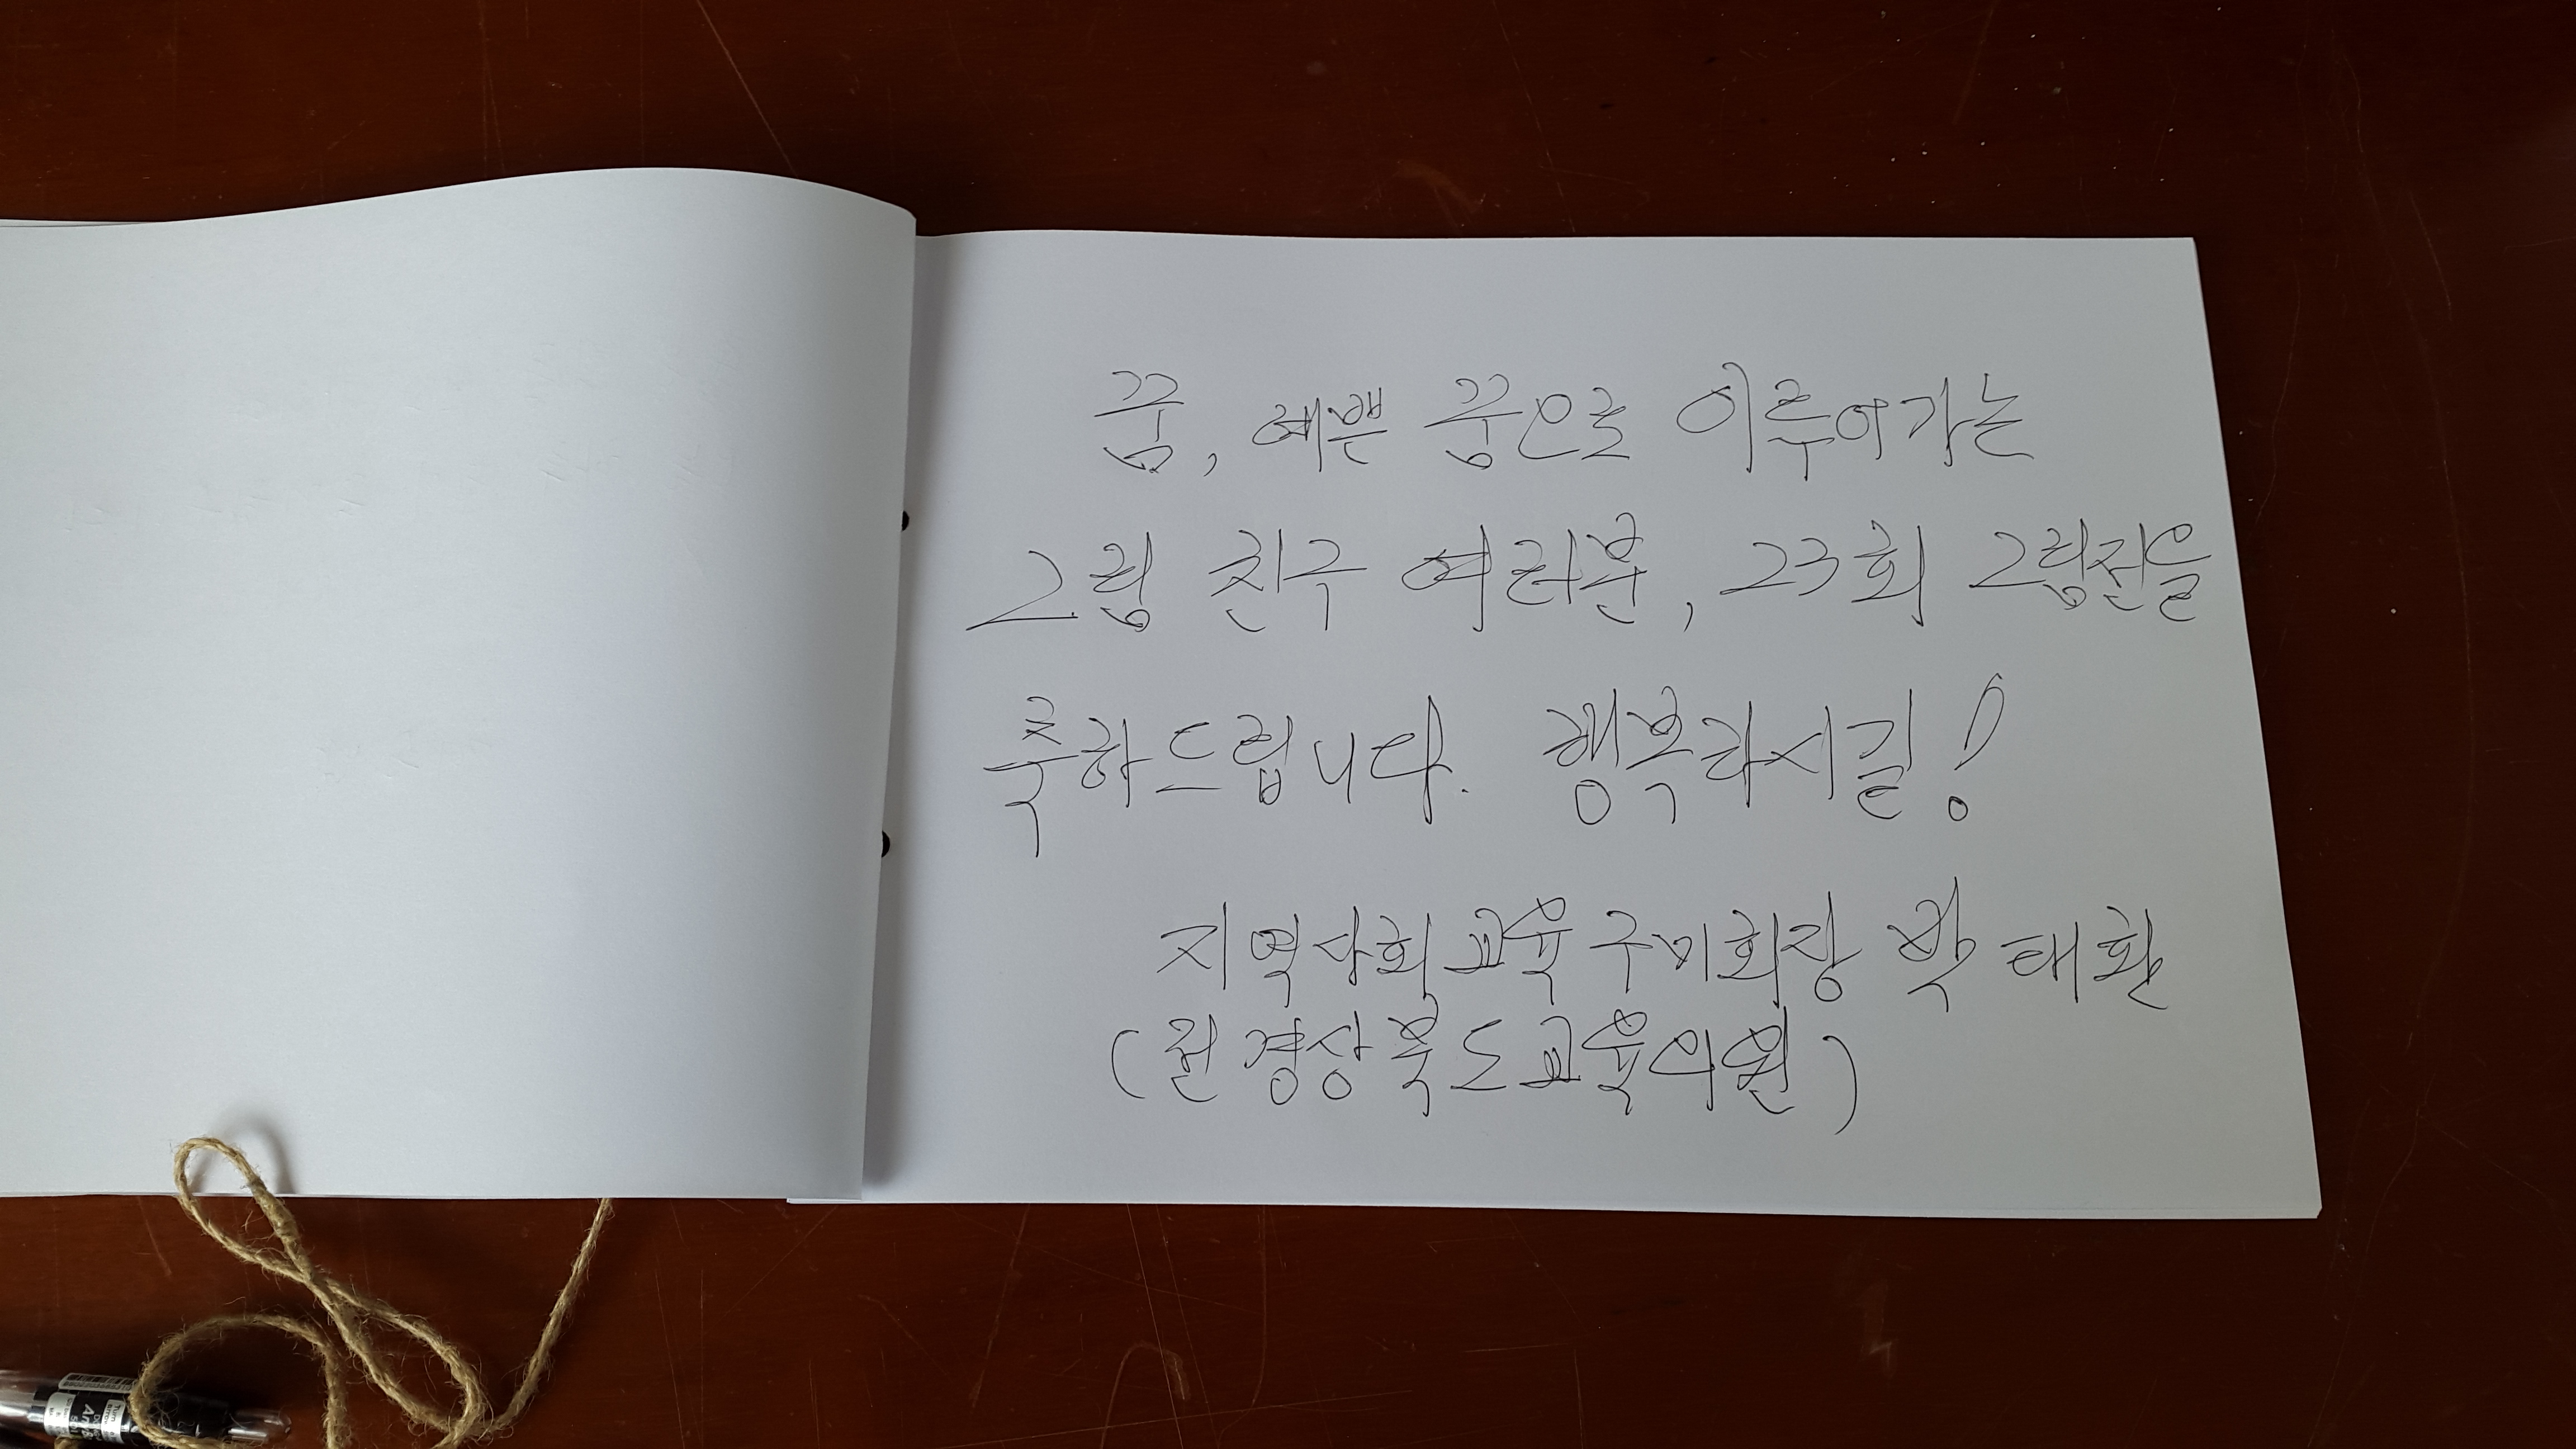 꿈, 예쁜 꿈으로 이루어가는
그림 친구 여러분, 23회 그림전을
축하드립니다. 행복하시길!
지역사회교육구미회장 박태환
(전 경상북도교육의원)